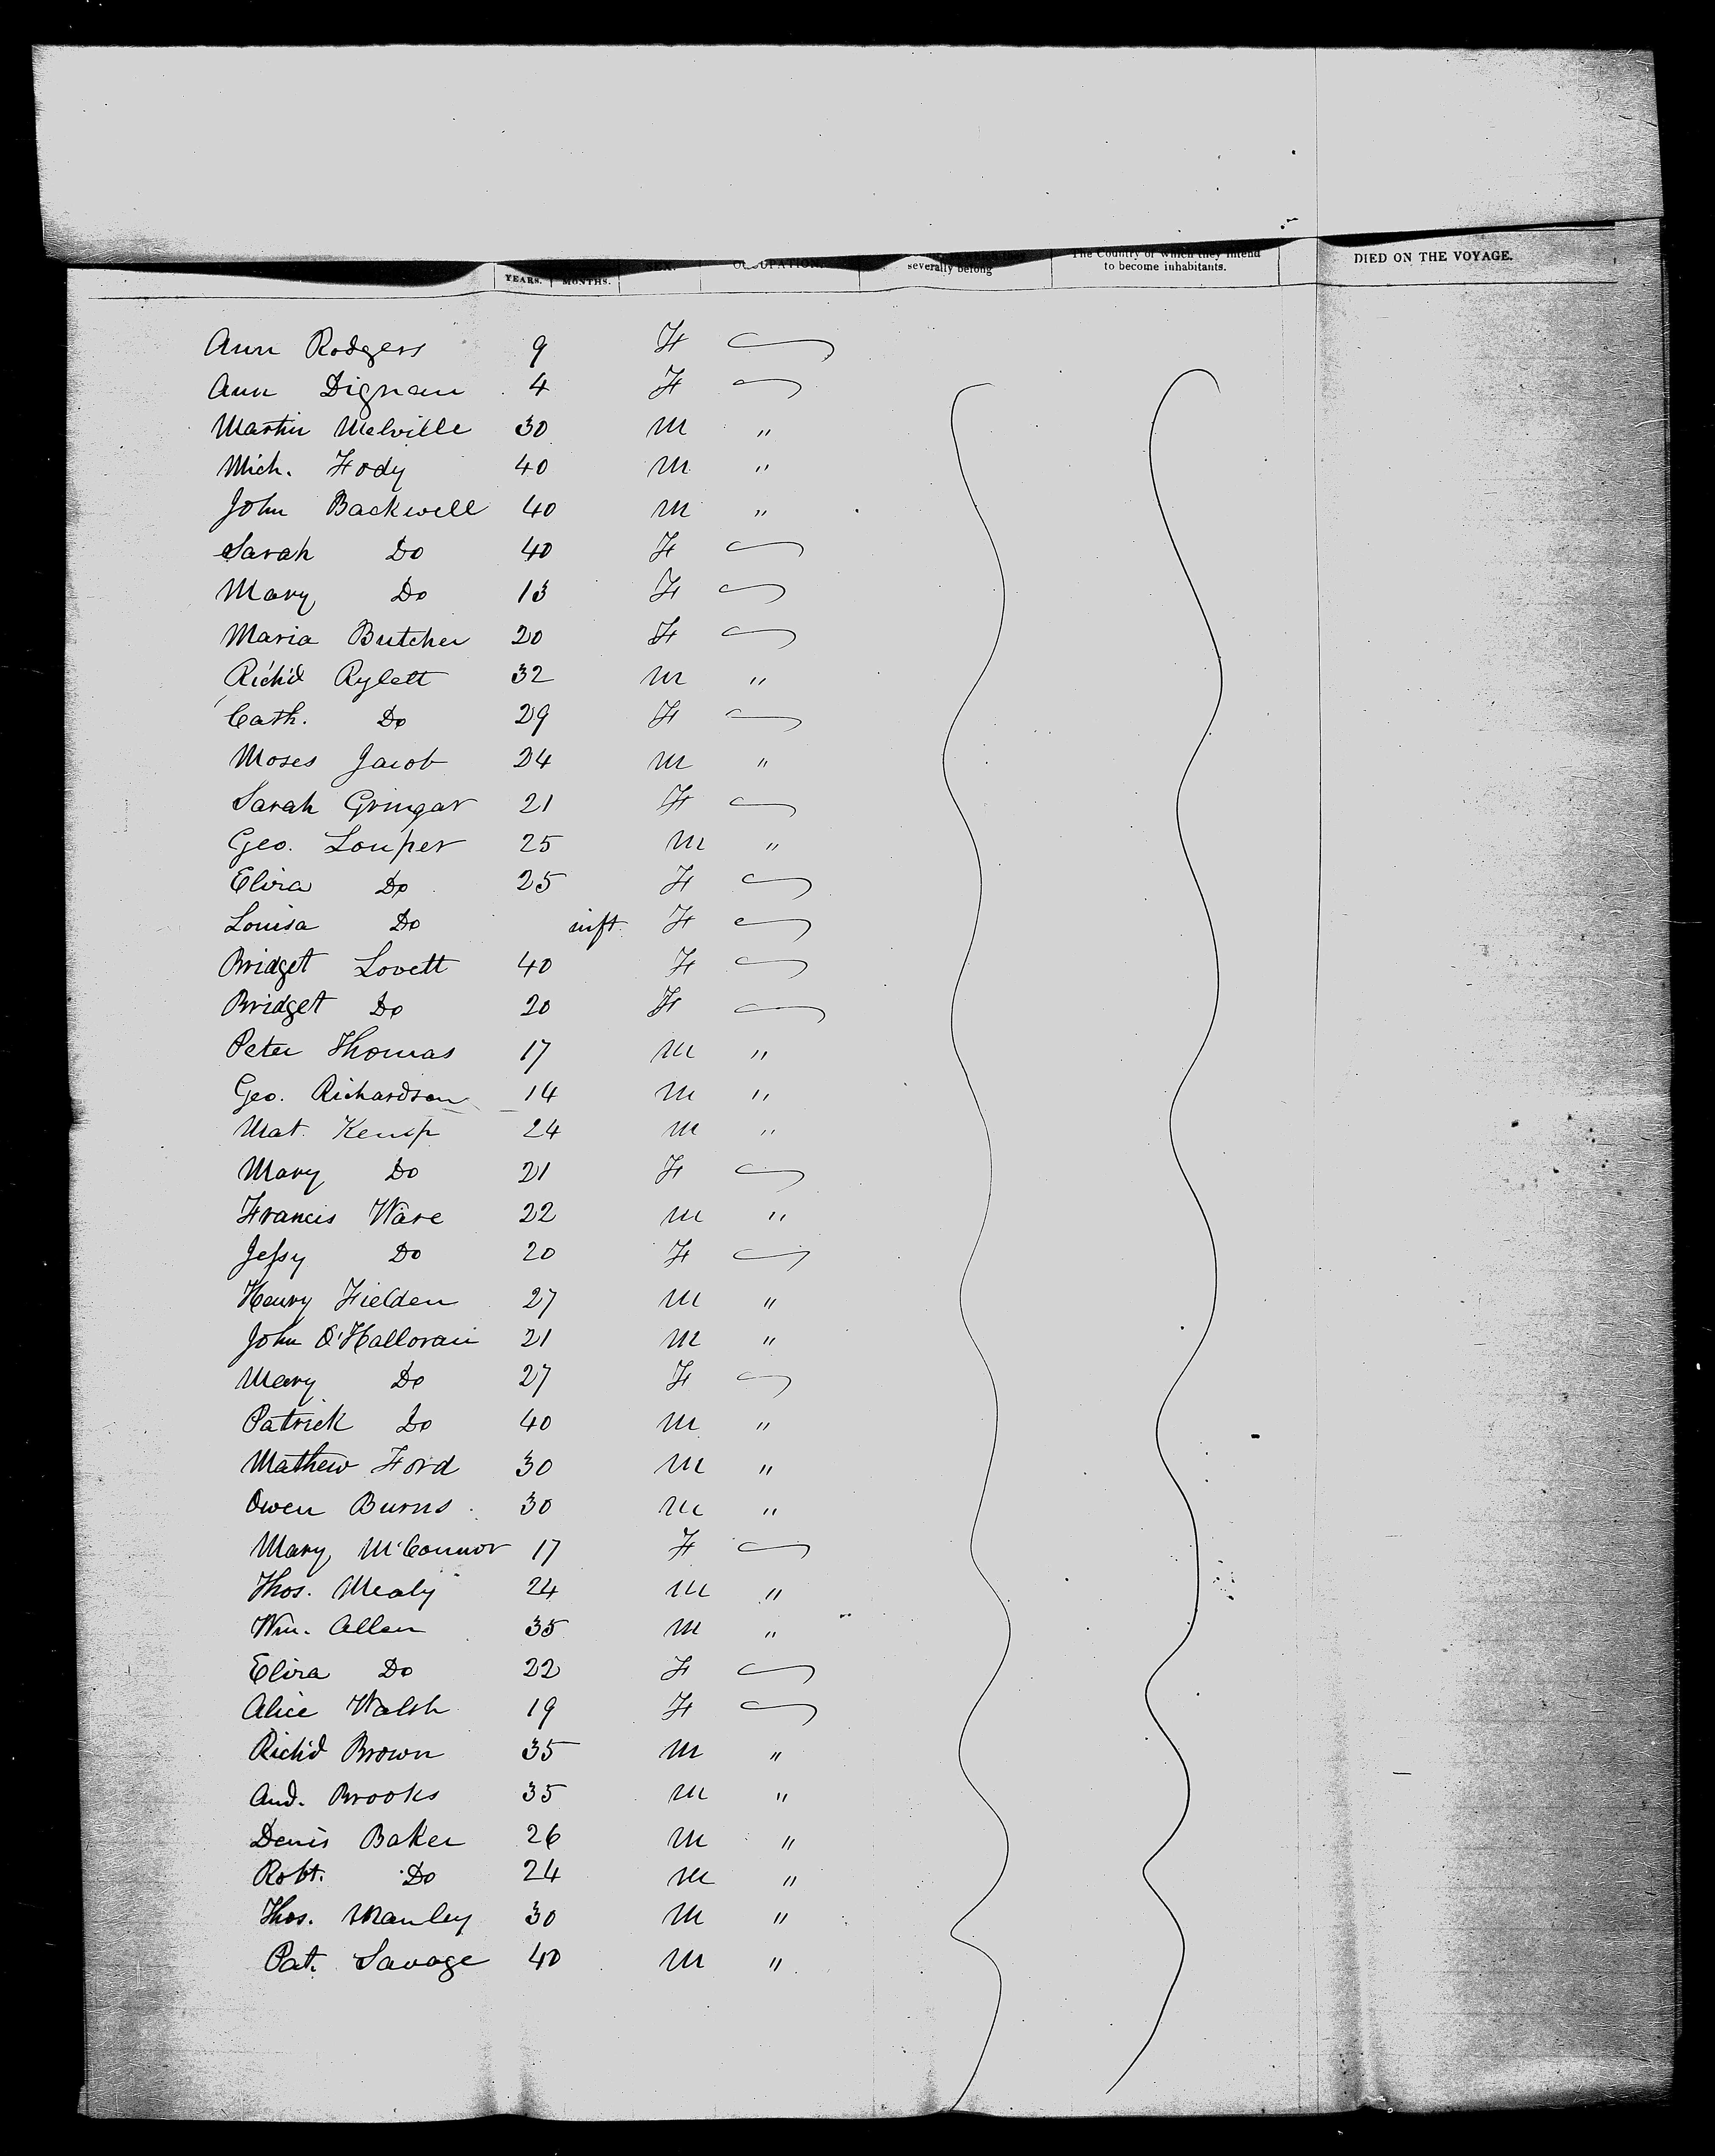 YEARS. MONTHS. SEX. OCCUPATION. severally belong The Country of which they intend to become inhabitants. DIED ON THE VOYAGE.
Ann Rodgers 9 F
Ann Dignam 4 F
Martin Melville 30 M "
Mich. Fody 40 M "
John Backwell 40 M "
Sarah Do 40 F
Mary Do 13 F
Maria Butcher 20 F
Rich'd Rylett 32 M "
Cath. Do 29 F
Moses Jacob 24 M "
Sarah Gringar 21 F
Geo. Louper 25 M "
Eliza Do 25 F
Louisa Do inft. F
Bridget Lovett 40 F
Bridget Do 20 F
Peter Thomas 17 M "
Geo. Richardson 14 M "
Mat. Kemp 24 M "
Mary Do 21 F
Francis Ware 22 M "
Jessy Do 20 F
Henry Fielden 27 M "
John O'Halloran 21 M "
Mary Do 27 F
Patrick Do 40 M "
Mathew Ford 30 M "
Owen Burns 30 M "
Mary McConnor 17 F
Thos. Mealy 24 M "
Wm. Allen 35 M "
Eliza Do 22 F
Alice Walsh 19 F
Rich'd Brown 35 M "
And. Brooks 35 M "
Denis Baker 26 M "
Robt. Do 24 M "
Thos. Manley 30 M "
Pat. Savage 40 M "